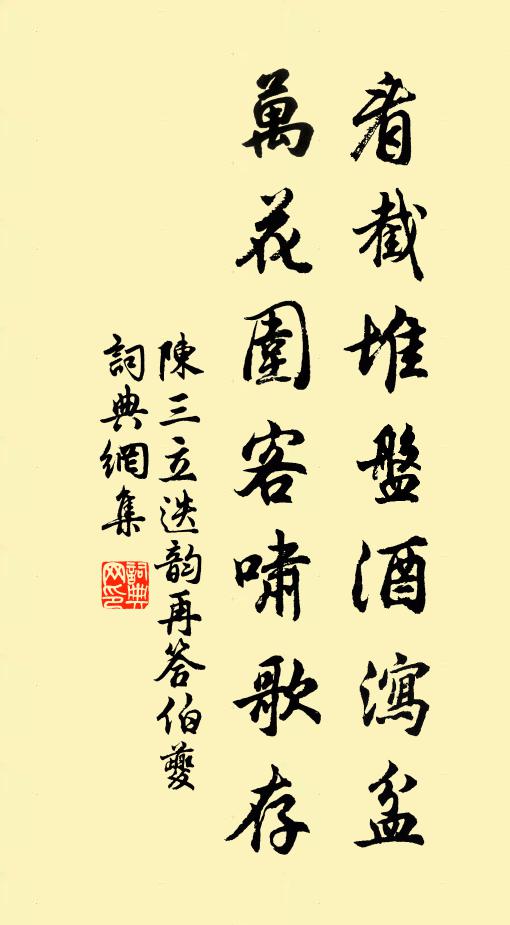 肴截堆盤酒瀉盆
萬花圍客嘯歌存
陳三立迭韵再答伯夔
詞典網集
詞典网印